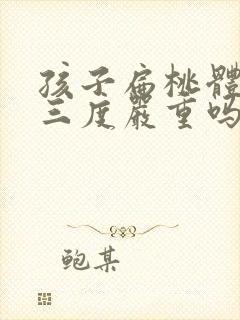 孩子扁桃體
三度嚴重嗎
鲍某